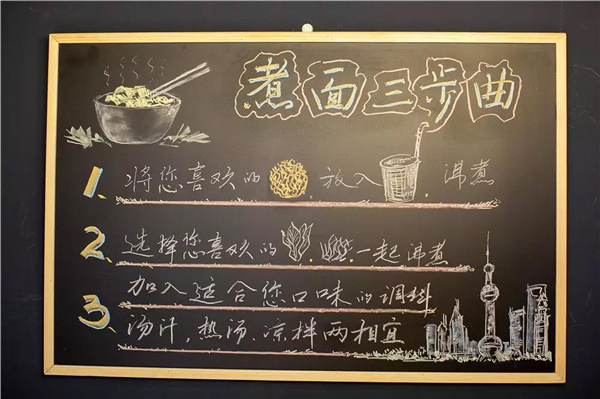 煮面三步曲
1. 将您喜欢的 放入 沸煮
2. 选择您喜欢的 一起沸煮
3. 加入适合您口味的调料
汤汁，热汤、凉拌两相宜